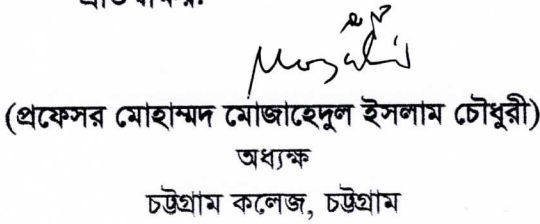 (প্রফেসর মোহাম্মদ মোজাহেদুল ইসলাম চৌধুরী)
অধ্যক্ষ
চট্টগ্রাম কলেজ, চট্টগ্রাম